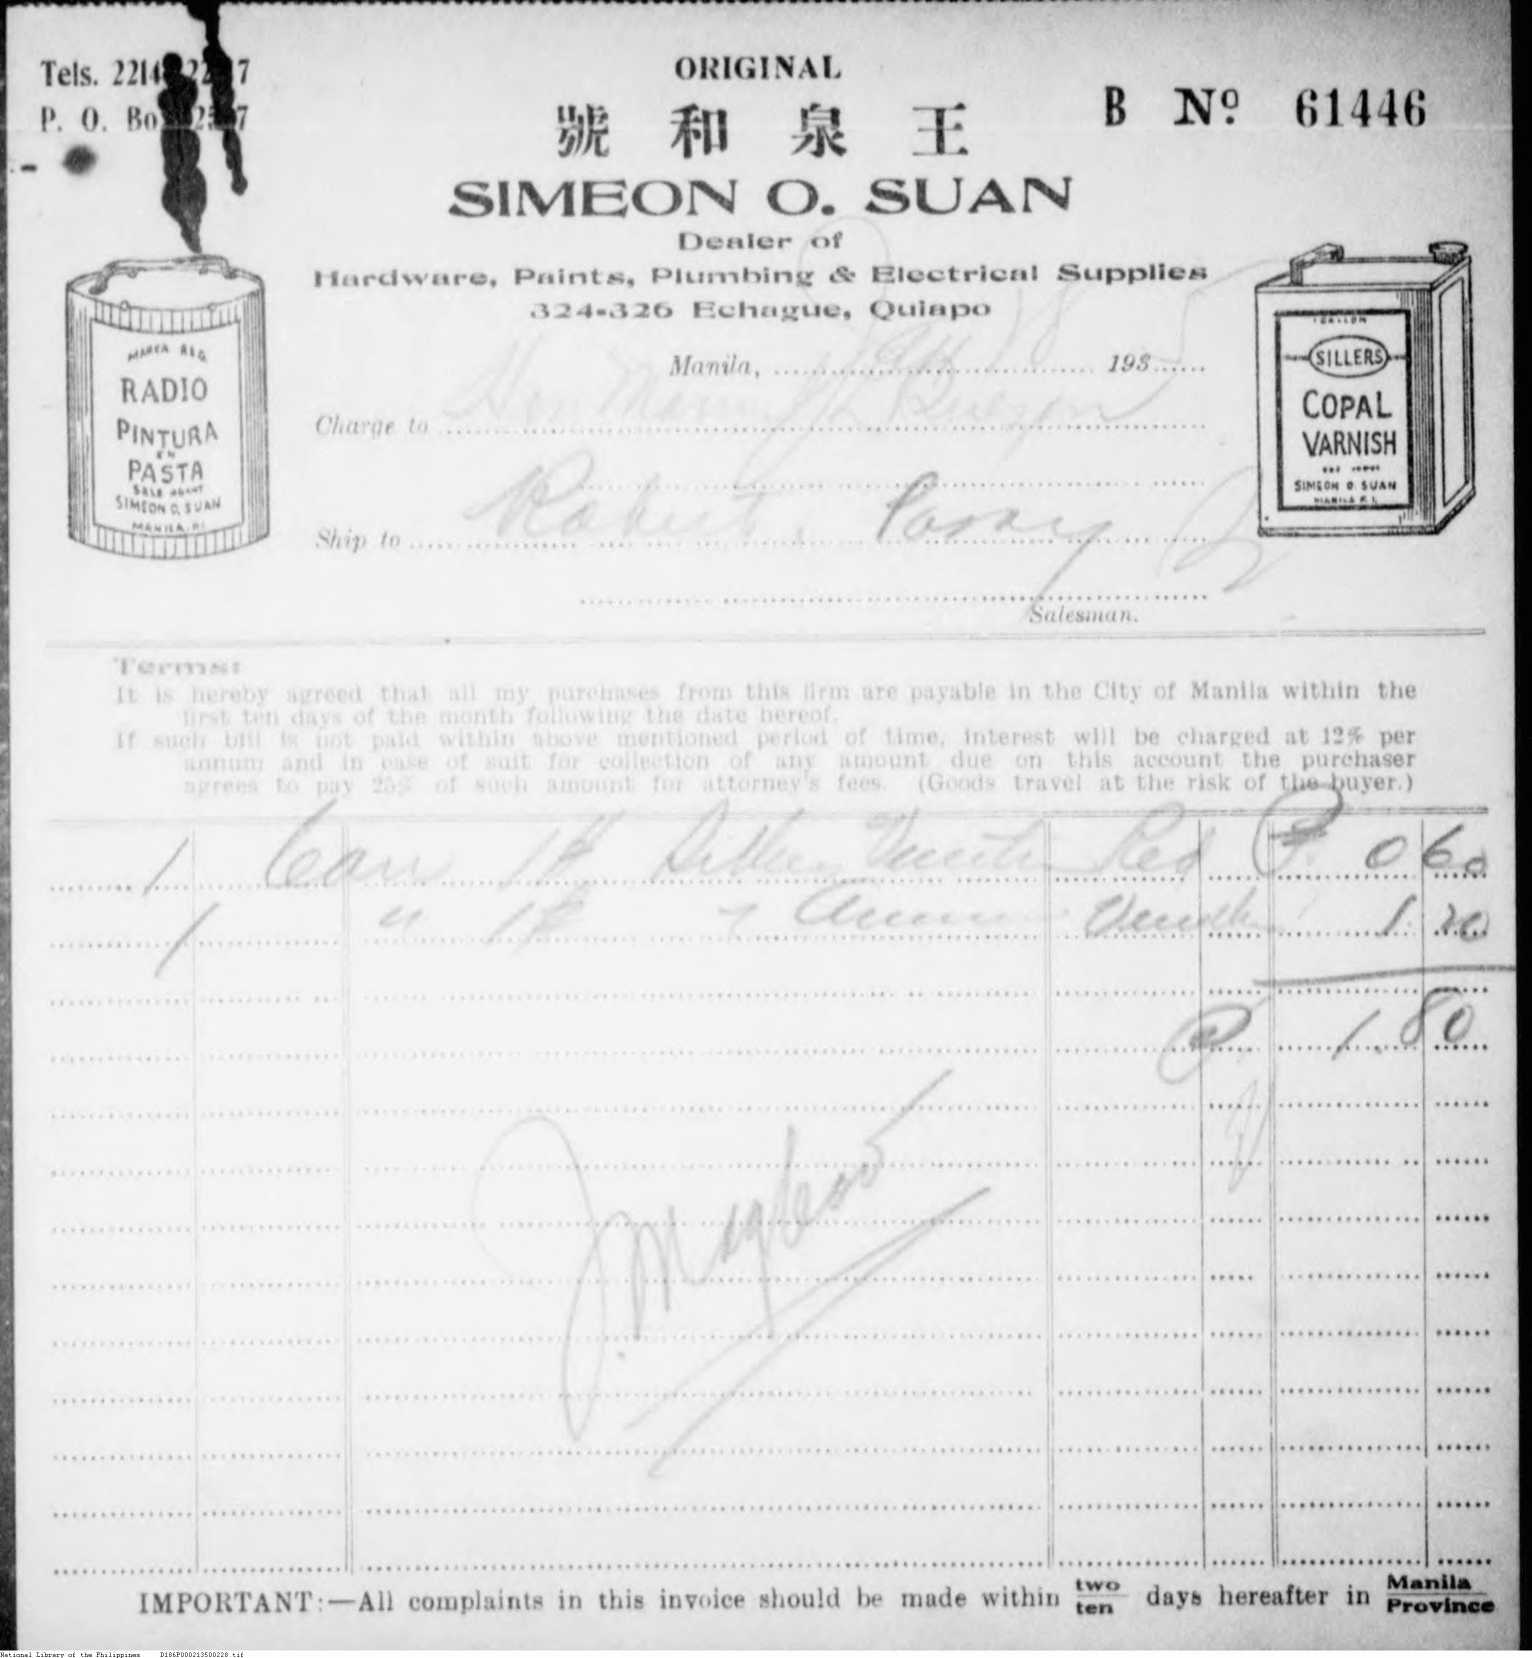 ORIGINAL
Tels.
P. O.
B No. 61446
號和泉王
SIMEON O. SUAN
Dealer of
Hardware, Paints, Plumbing & Electrical Supplies
324-326 Echague, Quiapo
MARCA REG.
RADIO
PINTURA
EN
PASTA
SALE AGENT
SIMEON O. SUAN
MANILA, P.I.
1 GALLON
SILLERS
COPAL
VARNISH
SIMEON O. SUAN
MANILA P.I.
Manila, 193
Charge to Hon Manuel Quezon
Ship to
Salesman.
Terms:
It is hereby agreed that all my purchases from this firm are payable in the City of Manila within the
first ten days of the month following the date hereof.
If such bill is not paid within above mentioned period of time, interest will be charged at 12% per
annum and in case of suit for collection of any amount due on this account the purchaser
agrees to pay 25% of such amount for attorney's fees. (Goods travel at the risk of the buyer.)
1 Can 1# Red ₱ 0 60
1 " 1# 1.20
₱ 1.80
IMPORTANT:—All complaints in this invoice should be made within two ten days hereafter in Manila Province
National Library of the Philippines D186P000213500228.tif